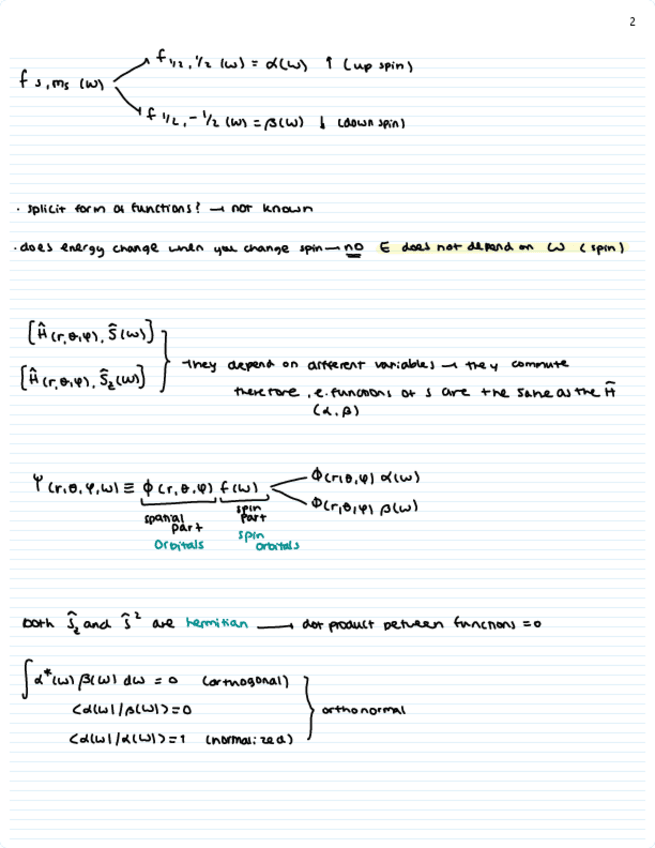 2
f 1/2, 1/2 (ω) = α(ω) ↑ (up spin)
f s, ms (ω)
f 1/2, -1/2 (ω) = β(ω) ↓ (down spin)
· splicit form of functions? → not known
· does energy change when you change spin → no E does not depend on ω (spin)
[Ĥ(r,θ,φ), Ŝ(ω)]
[Ĥ(r,θ,φ), Ŝz(ω)]
they depend on different variables → they commute
therefore, e. functions of s are the same as the Ĥ
(α, β)
Ψ(r,θ,φ,ω) ≡ ϕ(r,θ,φ) f(ω)
ϕ(r,θ,φ) α(ω)
ϕ(r,θ,φ) β(ω)
spatial part
spin part
orbitals
spin orbitals
both Ŝz and Ŝ² are hermitian → dot product between functions = 0
∫α*(ω) β(ω) dω = 0 (orthogonal)
<α(ω)/β(ω)> = 0
orthonormal
<α(ω)/α(ω)> = 1 (normalized)